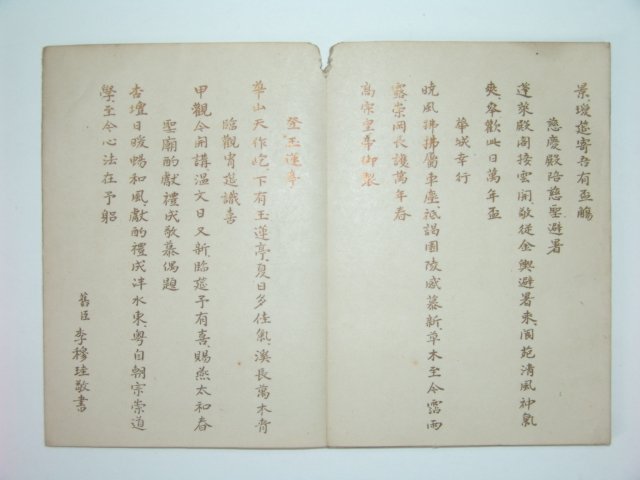 景瑗筵寄吾有盃觴
慈慶殿陪慈聖避暑
蓬萊殿閣接雲開敬従金輿避暑来閬苑清風神氣
爽奉歡此日萬年盃
華城幸行
曉風拂拂屬車塵祗謁園陵感慕新草木至今霑雨
露崇岡長護萬年春
高宗皇帝御製
登玉蓮亭
華山天作屹下有玉蓮亭夏日多佳氣溪長萬木青
臨觀胄筵識喜
甲觀今開講温文日又新臨筵予有喜賜燕太和春
聖廟酌獻禮成敬慕偶題
杏壇日暖暢和風獻酌禮成泮水東粤自朝宗崇道
學至今心法在予躬
舊臣 李穆珪敬書